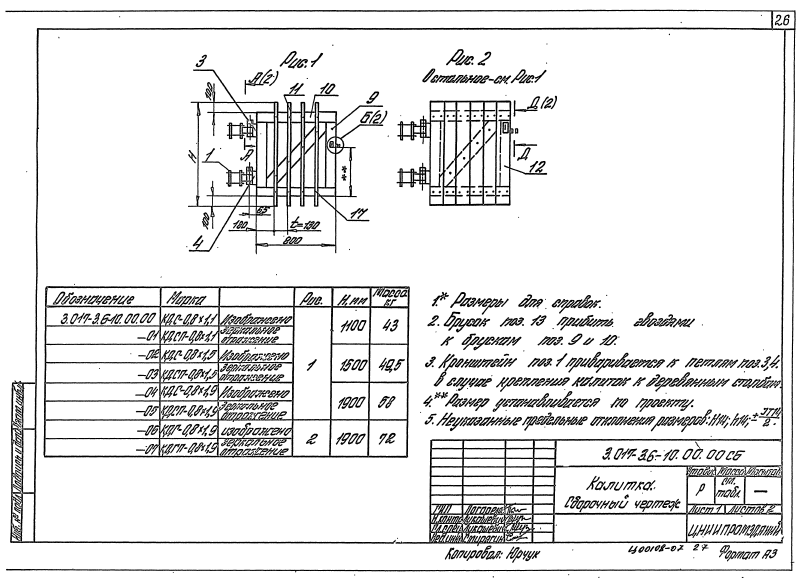 26
Рис.1
Рис. 2
Остальное-см. Рис.1
3
А(2)
11
10
9
Б(2)
100
Н
1
А
**
4
100
65
100
t=190
800
17
Д(2)
Д
12
Обозначение Марка Рис. Н, мм Масса кг
3.017-3.6-10.00.00 КДС-0,8×1,1 Изображено 1 1100 43
-01 КДСП-0,8×1,1 Зеркальное отражение
-02 КДС-0,8×1,5 Изображено 1500 49,5
-03 КДСП-0,8×1,5 Зеркальное отражение
-04 КДС-0,8×1,9 Изображено 1900 58
-05 КДСП-0,8×1,9 Зеркальное отражение
-06 КДГ-0,8×1,9 изображено 2 1900 72
-07 КДГП-0,8×1,9 зеркальное отражение
1.* Размеры для справок.
2. Брусок поз. 13 прибить гвоздями
к брускам поз. 9 и 10.
3. Кронштейн поз.1 приваривается к петлям поз.3,4.
в случае крепления калиток к деревянным столбам.
4.** Размер устанавливается по проекту.
5. Неуказанные предельные отклонения размеров: H14; h14; ± IT14/2.
3.017-3.6-10.00.00СБ
Калитка.
Сборочный чертеж
Стадия Масса Масштаб
Р см. табл. —
Лист 1 Листов 2
ЦНИИПРОМЗДАНИЙ
ГИП
Н.контр
Копировал: Юрчук
Ц00108-07 27
Формат А3